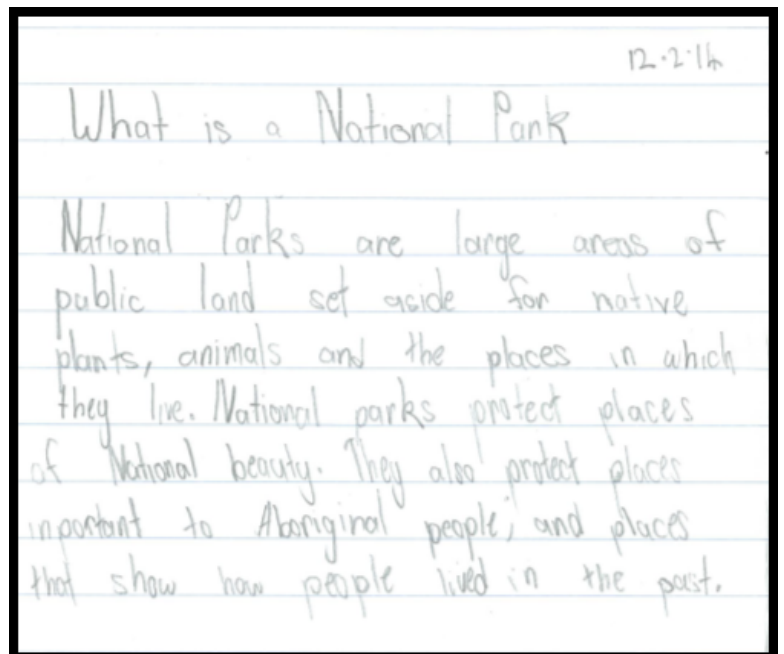 12.2.14
What is a National Park
National Parks are large areas of
public land set aside for native
plants, animals and the places in which
they live. National parks protect places
of National beauty. They also protect places
inportant to Aboriginal people, and places
that show how people lived in the past.